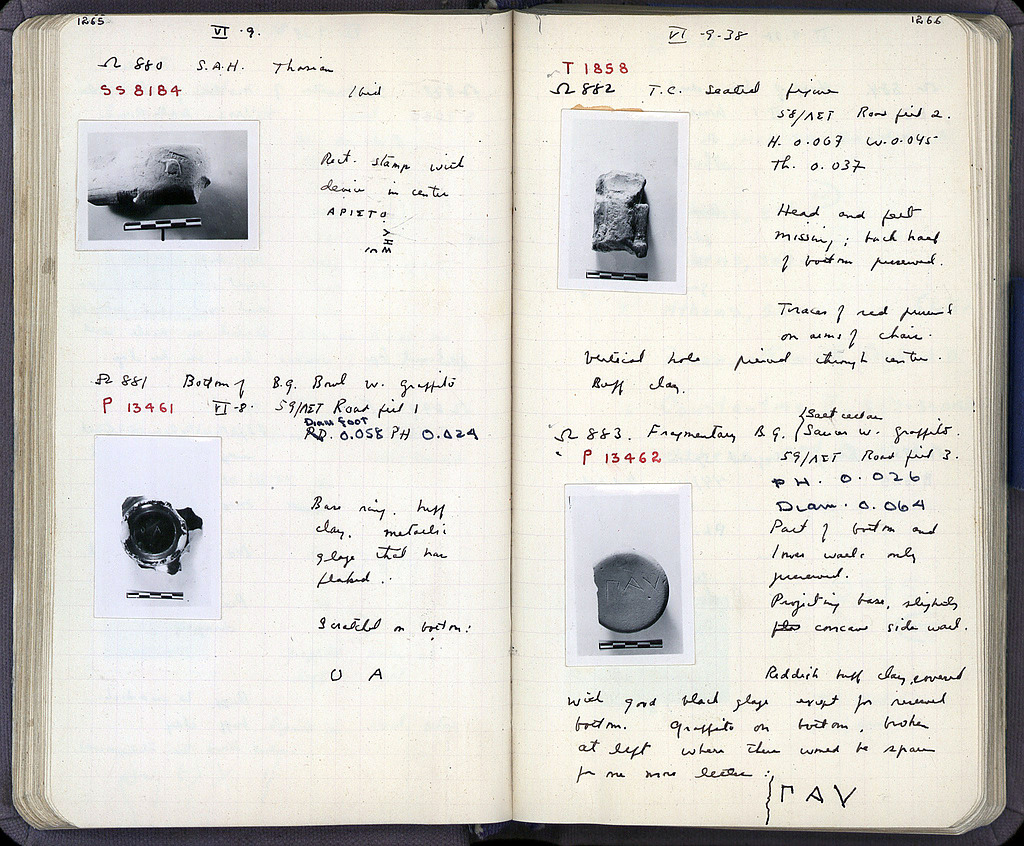 1265
VI -9.
Ω 880 S.A.H. Thasian
SS 8184 Ibid
Rect. stamp with
device in center
ΑΡΙΣΤΟ.
Ω 881 Bottom of B.G. Bowl w. graffito
P 13461 VI-8. 59/ΛΣΤ Road fill 1
Diam foot
0.058 PH 0.024
Base ring, buff
clay, metallic
glaze that has
flaked.
Scratched on bottom:
U A
1266
VI -9-38
T 1858
Ω 882 T.C. seated figure
58/ΛΣΤ Road fill 2.
H. 0.067 W. 0.045
Th. 0.037
Head and feet
missing; back half
of bottom preserved.
Traces of red
on arms of chair.
Vertical hole pierced through center.
Buff clay.
Saltcellar
Ω 883. Fragmentary B.G. Saucer w. graffito.
P 13462 59/ΛΣΤ Road fill 3.
PH. 0.026
Diam. 0.064
Part of bottom and
lower wall only
preserved.
Projecting base, slightly
concave side wall.
Reddish buff clay, covered
with good black glaze except for reserved
bottom. Graffito on bottom, broken
at left where there would be space
for one more letter:
ΓΑV